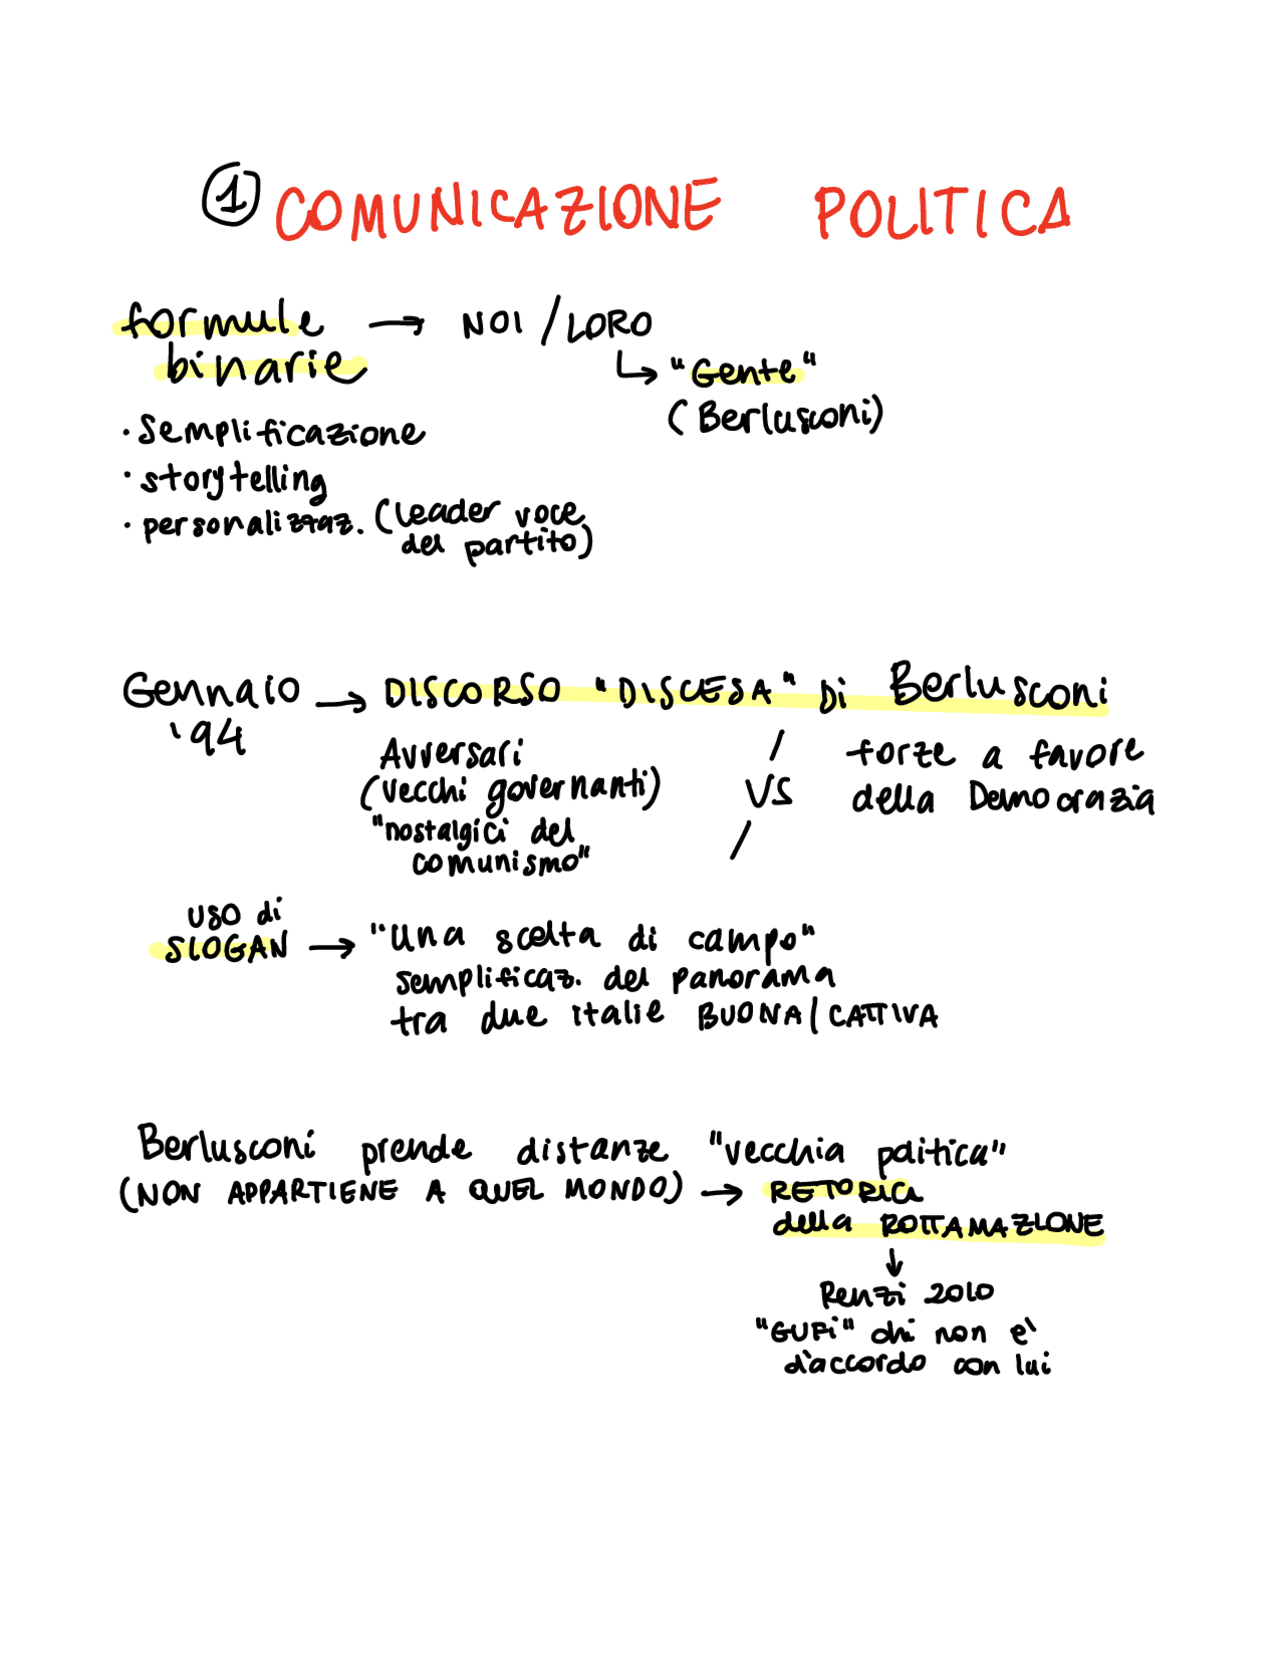 ① COMUNICAZIONE POLITICA
formule → NOI / LORO
binarie ↳ "Gente"
(Berlusconi)
· Semplificazione
· storytelling
· personalizzaz. (leader voce
del partito)
Gennaio → DISCORSO "DISCESA" Di Berlusconi
'94
Avversari / forze a favore
(vecchi governanti) VS della Democrazia
"nostalgici del /
comunismo"
uso di
SLOGAN → "una scelta di campo"
semplificaz. del panorama
tra due italie BUONA/CATTIVA
Berlusconi prende distanze "vecchia politica"
(NON APPARTIENE A QUEL MONDO) → RETORICA
della ROTTAMAZIONE
↓
Renzi 2010
"GUFi" chi non è
d'accordo con lui